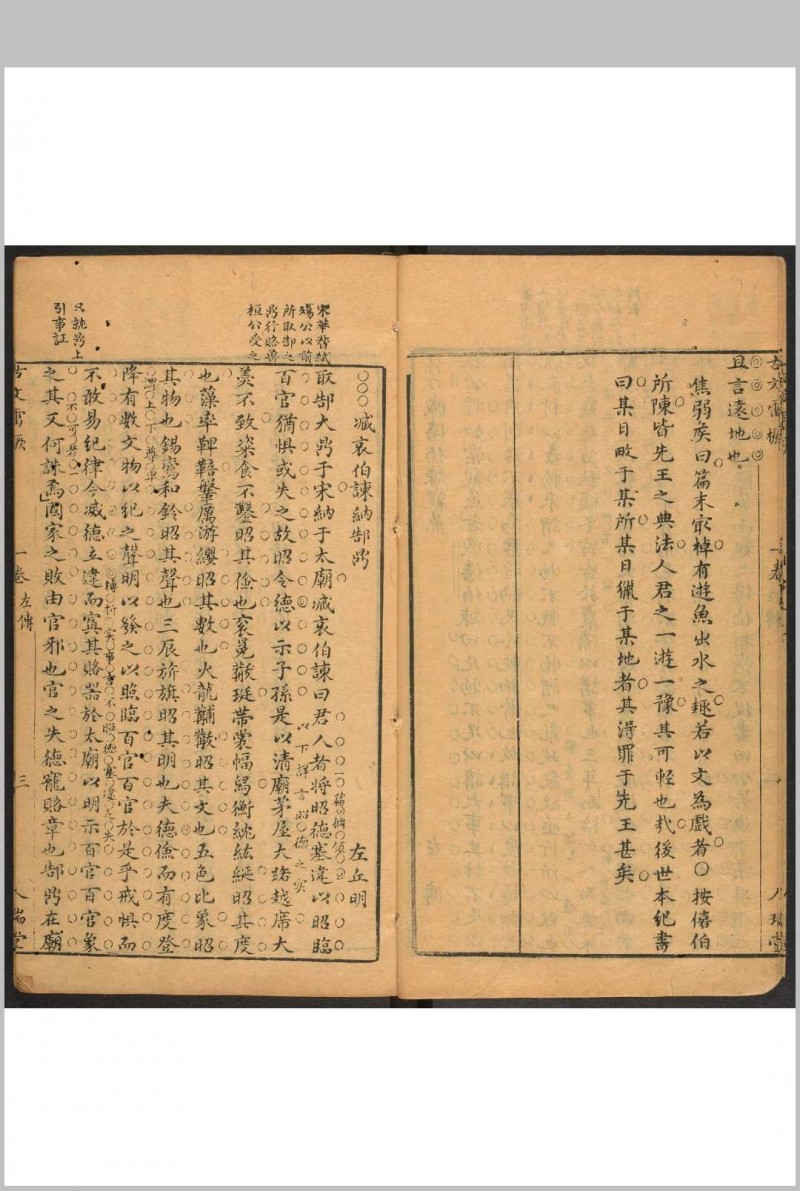 且言遠地也
焦弱矦曰篇末㝡棹有遊魚出水之趣若以文為戲者○按僖伯
所陳皆先王之典法人君之一遊一豫其可輕也㢤後世本紀書
曰某日畋于某所某日獵于某地者其淂罪于先王甚矣
○○○臧哀伯諫納郜鼎
左丘明
宋華督弑
殤公以前
所取郜之
鼎行賂魯
桓公受之
取郜大鼎于宋納于太廟臧哀伯諫曰君人者將昭德塞違以昭臨
百官猶惧或失之故昭令德以示子孫是以清廟茅屋大路越席大
以下詳言昭德之实
羹不致粢食不鑿昭其儉也衮冕黻珽帶裳幅舄衡紞紘綖昭其度
也藻率鞞鞛鞶厲游纓昭其數也火龍黼黻昭其文也五色比象昭
其物也鍚鸞和鈴昭其聲也三辰旂旗昭其明也夫德儉而有度登
謂上下尊卑
降有數文物以紀之聲明以發之以照臨百官百官於是乎戒惧而
不敢易紀律今滅德立違而寘其賂器於太廟以明示百官百官象
只就鼎上
引事証
之其又何誅焉國家之敗由官邪也官之失德寵賂章也郜鼎在廟
一卷
左傳
三